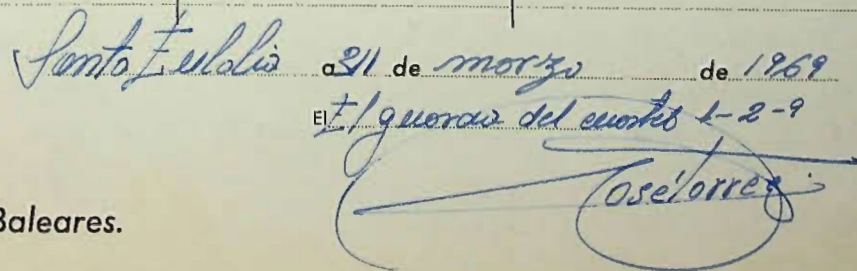 Santa Eulalia a 31 de marzo de 1969
El El guarda del cuartel 1-2-9
José Torres
Baleares.